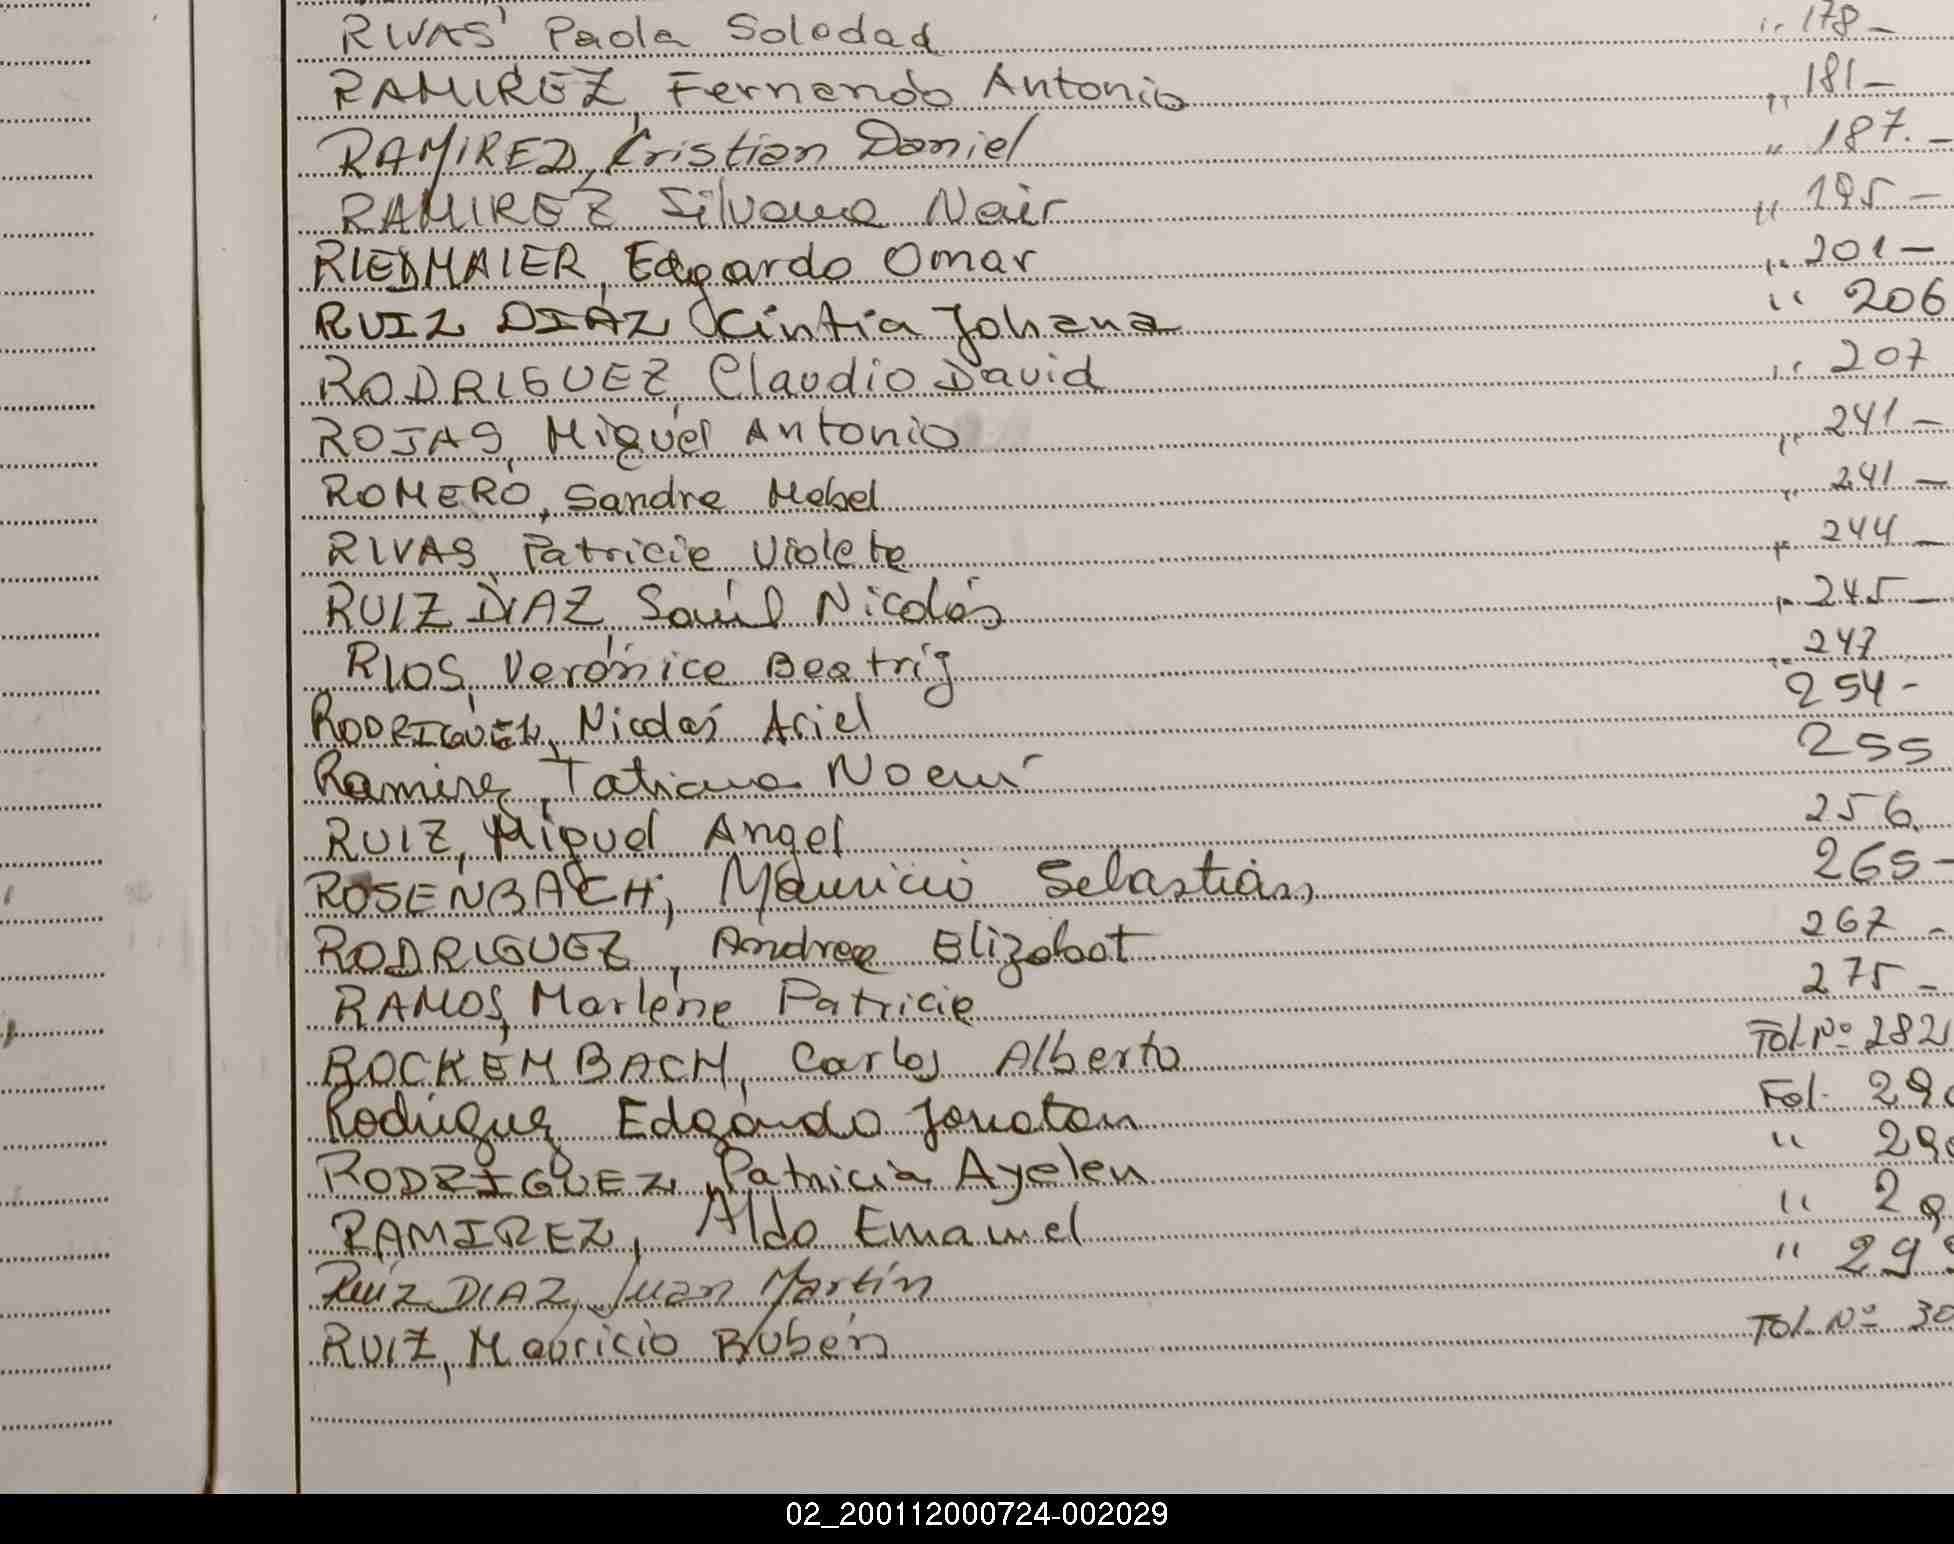 RIVAS Paola Soledad ,, 178 -
RAMIREZ, Fernando Antonio ,, 181 -
RAMIREZ, Cristian Daniel ,, 187. -
RAMIREZ Silvana Nair ,, 195 -
RIEDMAIER, Edgardo Omar ,, 201 -
RUIZ DIÁZ Cintia Johana ,, 206
RODRIGUEZ, Claudio David ,, 207
ROJAS, Miguel Antonio ,, 241 -
ROMERO, Sandra Mabel ,, 241 -
RIVAS, Patricia Violeta ,, 244 -
RUIZ DIAZ, Saúl Nicolás ,, 245 -
RIOS, Verónica Beatriz ,, 247
RODRIGUEZ, Nicolás Ariel 254 -
Ramirez, Tatiana Noemí 255
RUIZ, Miguel Angel 256.
ROSENBACH, Mauricio Sebastián 265 -
RODRIGUEZ, Andrea Elizabet 267 -
RAMOS, Marlene Patricia 275 -
ROCKEMBACH, Carlos Alberto Fol. Nº 282
Rodríguez Edgardo Jonatan Fol. 29
RODRIGUEZ, Patricia Ayelen ,, 29
RAMIREZ, Aldo Emanuel ,, 2
Ruiz DIAZ, Juan Martín ,, 29
RUIZ, Mauricio Rubén Fol. Nº 30
02_200112000724-002029